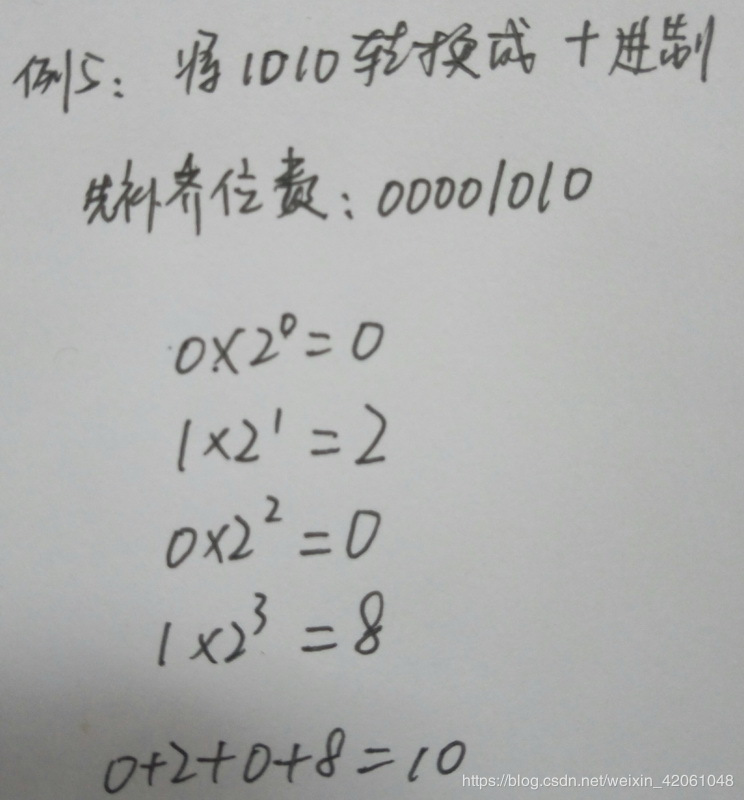 例5: 将1010转换成十进制
先补齐位数: 00001010
0×2⁰=0
1×2¹=2
0×2²=0
1×2³=8
0+2+0+8=10
https://blog.csdn.net/weixin_42061048